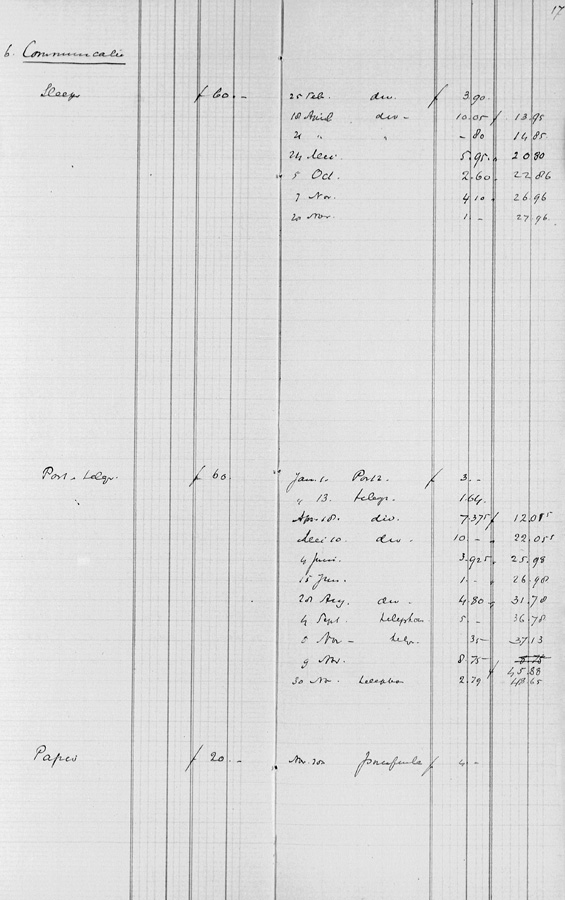 17
6. Communicatie
f 60.- 25 Feb. div. f 3.90
18 April div- 10.05 f 13.95
21 " " -80 14.85
24 Mei 5.95 20.80
5 Oct. 2.60 22.86
7 Nov. 4.10 26.96
20 Nov. 1.- 27.96
Port. telegr. f 60. Jan. f 3.-
" 13. telegr. 1.64
Apr. 18. div. 7.375 f 12.015
Mei 10. div- 10.- 22.055
4 Juni. 3.925 25.98
15 Jun. 1.- 26.98
Aug. div- 4.80 31.78
4 Sept. telephon 5.- 36.78
Nov- 35 37.13
9 Nov. 8.75
f 45.88
30 Nov. telephon 2.79 48.65
Papier f 20.- Nov. f 4.-